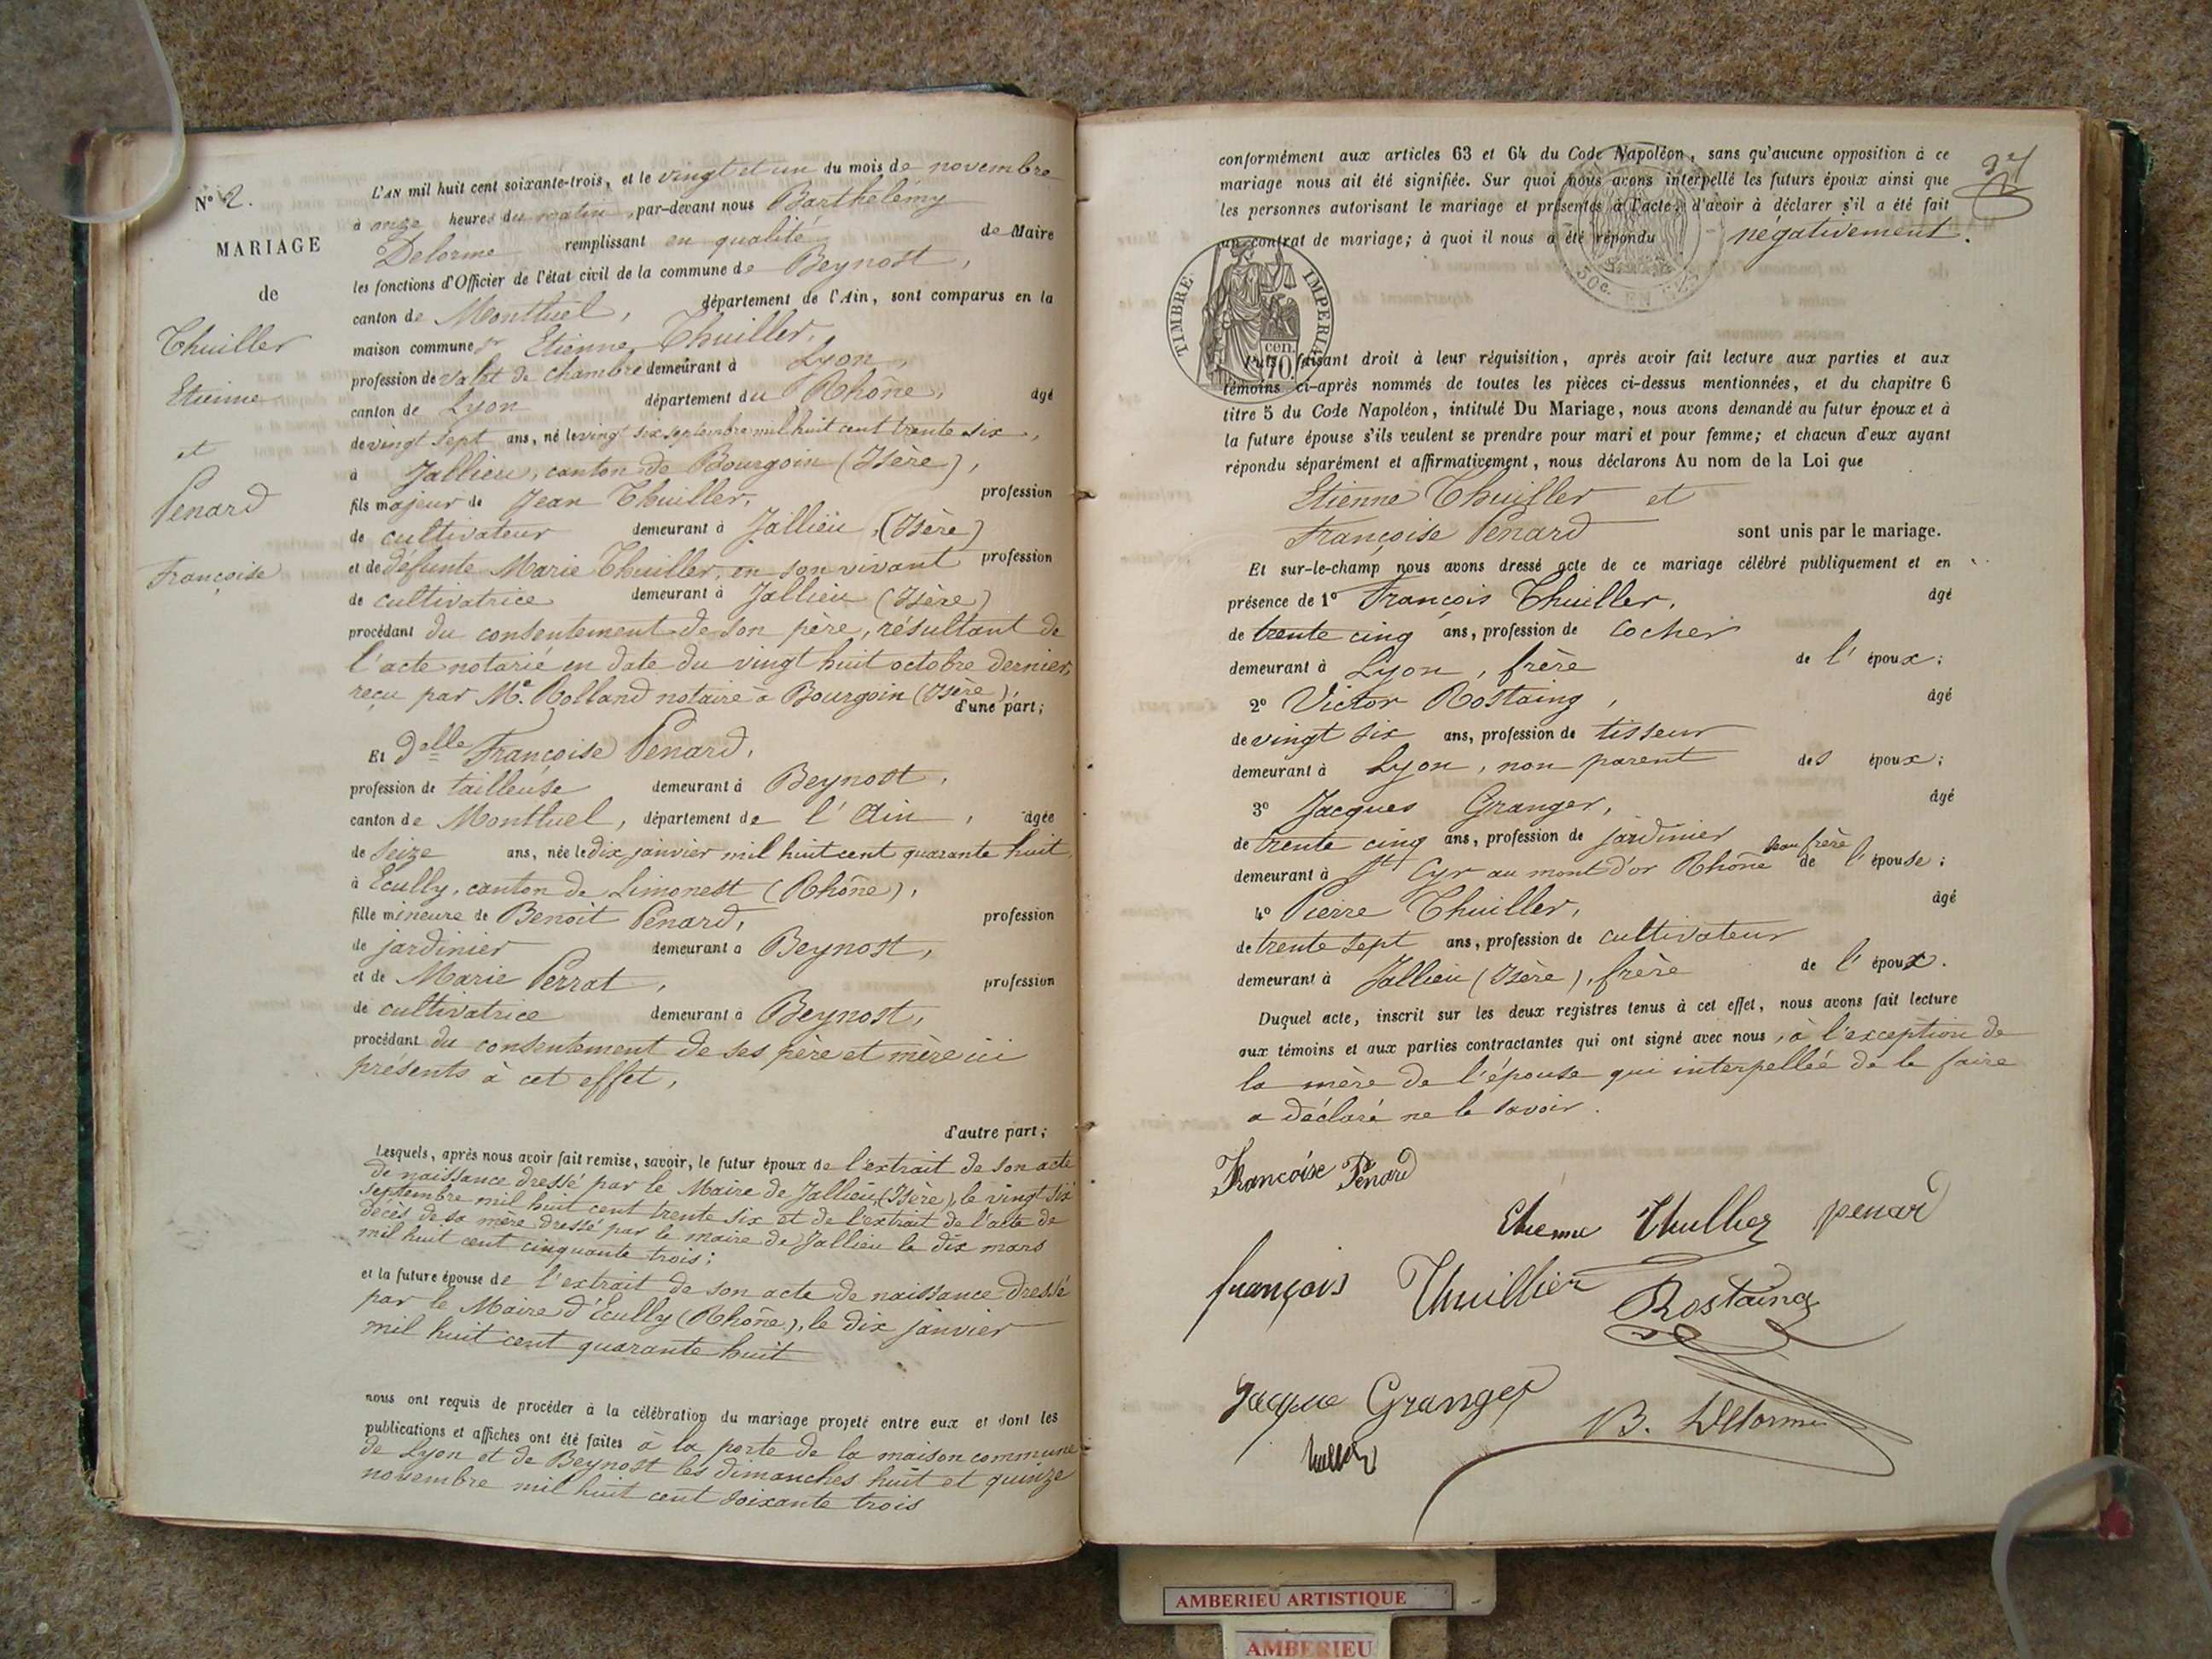 N° 2.
MARIAGE
de
Thuiller
Etienne
et
Penard
Françoise
L'AN mil huit cent soixante-trois, et le vingt et un du mois de novembre
à onze heures du matin, par-devant nous Barthélemy
Delorme remplissant en qualité de Maire
les fonctions d'Officier de l'état civil de la commune de Beynost,
canton de Montluel, département de l'Ain, sont comparus en la
maison commune Sr Etienne Thuiller,
profession de valet de chambre demeurant à Lyon,
canton de Lyon département du Rhône, âgé
de vingt sept ans, né le vingt six septembre mil huit cent trente six,
à Jallieu, canton de Bourgoin (Isère),
fils majeur de Jean Thuiller, profession
de cultivateur demeurant à Jallieu, (Isère)
et de défunte Marie Thuiller, en son vivant profession
de cultivatrice demeurant à Jallieu (Isère)
procédant du consentement de son père, résultant de
l'acte notarié en date du vingt huit octobre dernier,
reçu par Me. Rolland notaire à Bourgoin (Isère),
d'une part;
Et Delle Françoise Penard,
profession de tailleuse demeurant à Beynost,
canton de Montluel, département de l'Ain, âgée
de seize ans, née le dix janvier mil huit cent quarante huit,
à Ecully, canton de Limonest (Rhône),
fille mineure de Benoit Penard, profession
de jardinier demeurant à Beynost,
et de Marie Perrat, profession
de cultivatrice demeurant à Beynost,
procédant du consentement de ses père et mère ici
présents à cet effet,
d'autre part;
Lesquels, après nous avoir fait remise, savoir, le futur époux de l'extrait de son acte
de naissance dressé par le Maire de Jallieu, (Isère), le vingt six
septembre mil huit cent trente six et de l'extrait de l'acte de
décès de sa mère dressé par le maire de Jallieu le dix mars
mil huit cent cinquante trois;
et la future épouse de l'extrait de son acte de naissance dressé
par le Maire d'Ecully (Rhône), le dix janvier
mil huit cent quarante huit
nous ont requis de procéder à la célébration du mariage projeté entre eux et dont les
publications et affiches ont été faites à la porte de la maison commune
de Lyon et de Beynost les dimanches huit et quinze
novembre mil huit cent soixante trois
conformément aux articles 63 et 64 du Code Napoléon, sans qu'aucune opposition à ce
mariage nous ait été signifiée. Sur quoi nous avons interpellé les futurs époux ainsi que
les personnes autorisant le mariage et présentes à l'acte, d'avoir à déclarer s'il a été fait
un contrat de mariage; à quoi il nous a été répondu négativement.
50c. EN SUS
TIMBRE IMPERIAL
cen. 70.
Puis faisant droit à leur réquisition, après avoir fait lecture aux parties et aux
témoins ci-après nommés de toutes les pièces ci-dessus mentionnées, et du chapitre 6
titre 5 du Code Napoléon, intitulé Du Mariage, nous avons demandé au futur époux et à
la future épouse s'ils veulent se prendre pour mari et pour femme; et chacun d'eux ayant
répondu séparément et affirmativement, nous déclarons Au nom de la Loi que
Etienne Thuiller et
Françoise Penard sont unis par le mariage.
Et sur-le-champ nous avons dressé acte de ce mariage célébré publiquement et en
présence de 1° François Thuiller, âgé
de trente cinq ans, profession de cocher
demeurant à Lyon, frère de l'époux;
2° Victor Rostaing, âgé
de vingt six ans, profession de tisseur
demeurant à Lyon, non parent des époux;
3° Jacques Granger, âgé
de trente cinq ans, profession de jardinier
demeurant à St Cyr au mont d'or Rhône beau frère de l'épouse;
4° Pierre Thuiller, âgé
de trente sept ans, profession de cultivateur
demeurant à Jallieu (Isère), frère de l'époux.
Duquel acte, inscrit sur les deux registres tenus à cet effet, nous avons fait lecture
aux témoins et aux parties contractantes qui ont signé avec nous, à l'exception de
la mère de l'épouse qui interpellée de le faire
a déclaré ne le savoir.
Francoise Penard
Etienne Thuillier penard
françois Thuillier
Rostaing
Jacque Granger
B. Delorme
AMBERIEU ARTISTIQUE
AMBERIEU